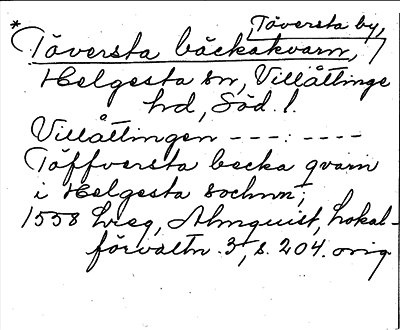 Töversta by,
*Töversta bäckakvarn,
Helgesta sn, Villåttinge
hd, Söd. l.
Villåttingen ---:----
Töffversta becka qvarn
i Helgesta sochnn,
1558 hreg, Almquist, Lokal-
förvaltn. 3, s. 204. orig